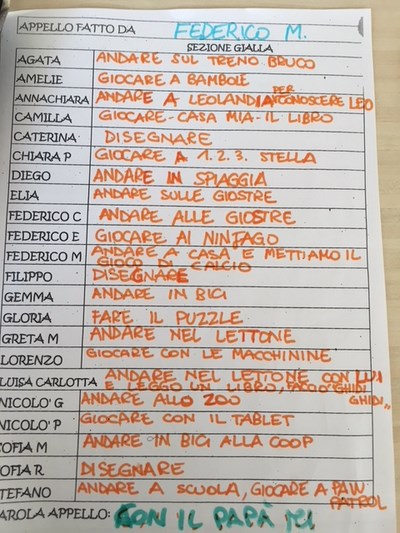 APPELLO FATTO DA FEDERICO M.
SEZIONE GIALLA
AGATA ANDARE SUL TRENO BRUCO
AMELIE GIOCARE A BAMBOLE
ANNACHIARA ANDARE A LEOLANDIA PER CONOSCERE LEO
CAMILLA GIOCARE-CASA MIA-IL LIBRO
CATERINA DISEGNARE
CHIARA P GIOCARE A 1.2.3. STELLA
DIEGO ANDARE IN SPIAGGIA
ELIA ANDARE SULLE GIOSTRE
FEDERICO C ANDARE ALLE GIOSTRE
FEDERICO E GIOCARE AI NINJAGO
FEDERICO M ANDARE A CASA E METTIAMO IL
GIOCO DI CALCIO
FILIPPO DISEGNARE
GEMMA ANDARE IN BICI
GLORIA FARE IL PUZZLE
GRETA M ANDARE NEL LETTONE
LORENZO GIOCARE CON LE MACCHININE
LUISA CARLOTTA ANDARE NEL LETTONE CON LUI
E LEGGO UN LIBRO, GHIDI
GHIDI
NICOLO' G ANDARE ALLO ZOO
NICOLO' P GIOCARE CON IL TABLET
OFIA M ANDARE IN BICI ALLA COOP
OFIA R DISEGNARE
TEFANO ANDARE A SCUOLA, GIOCARE A PAW
PATROL
AROLA APPELLO: CON IL PAPÀ